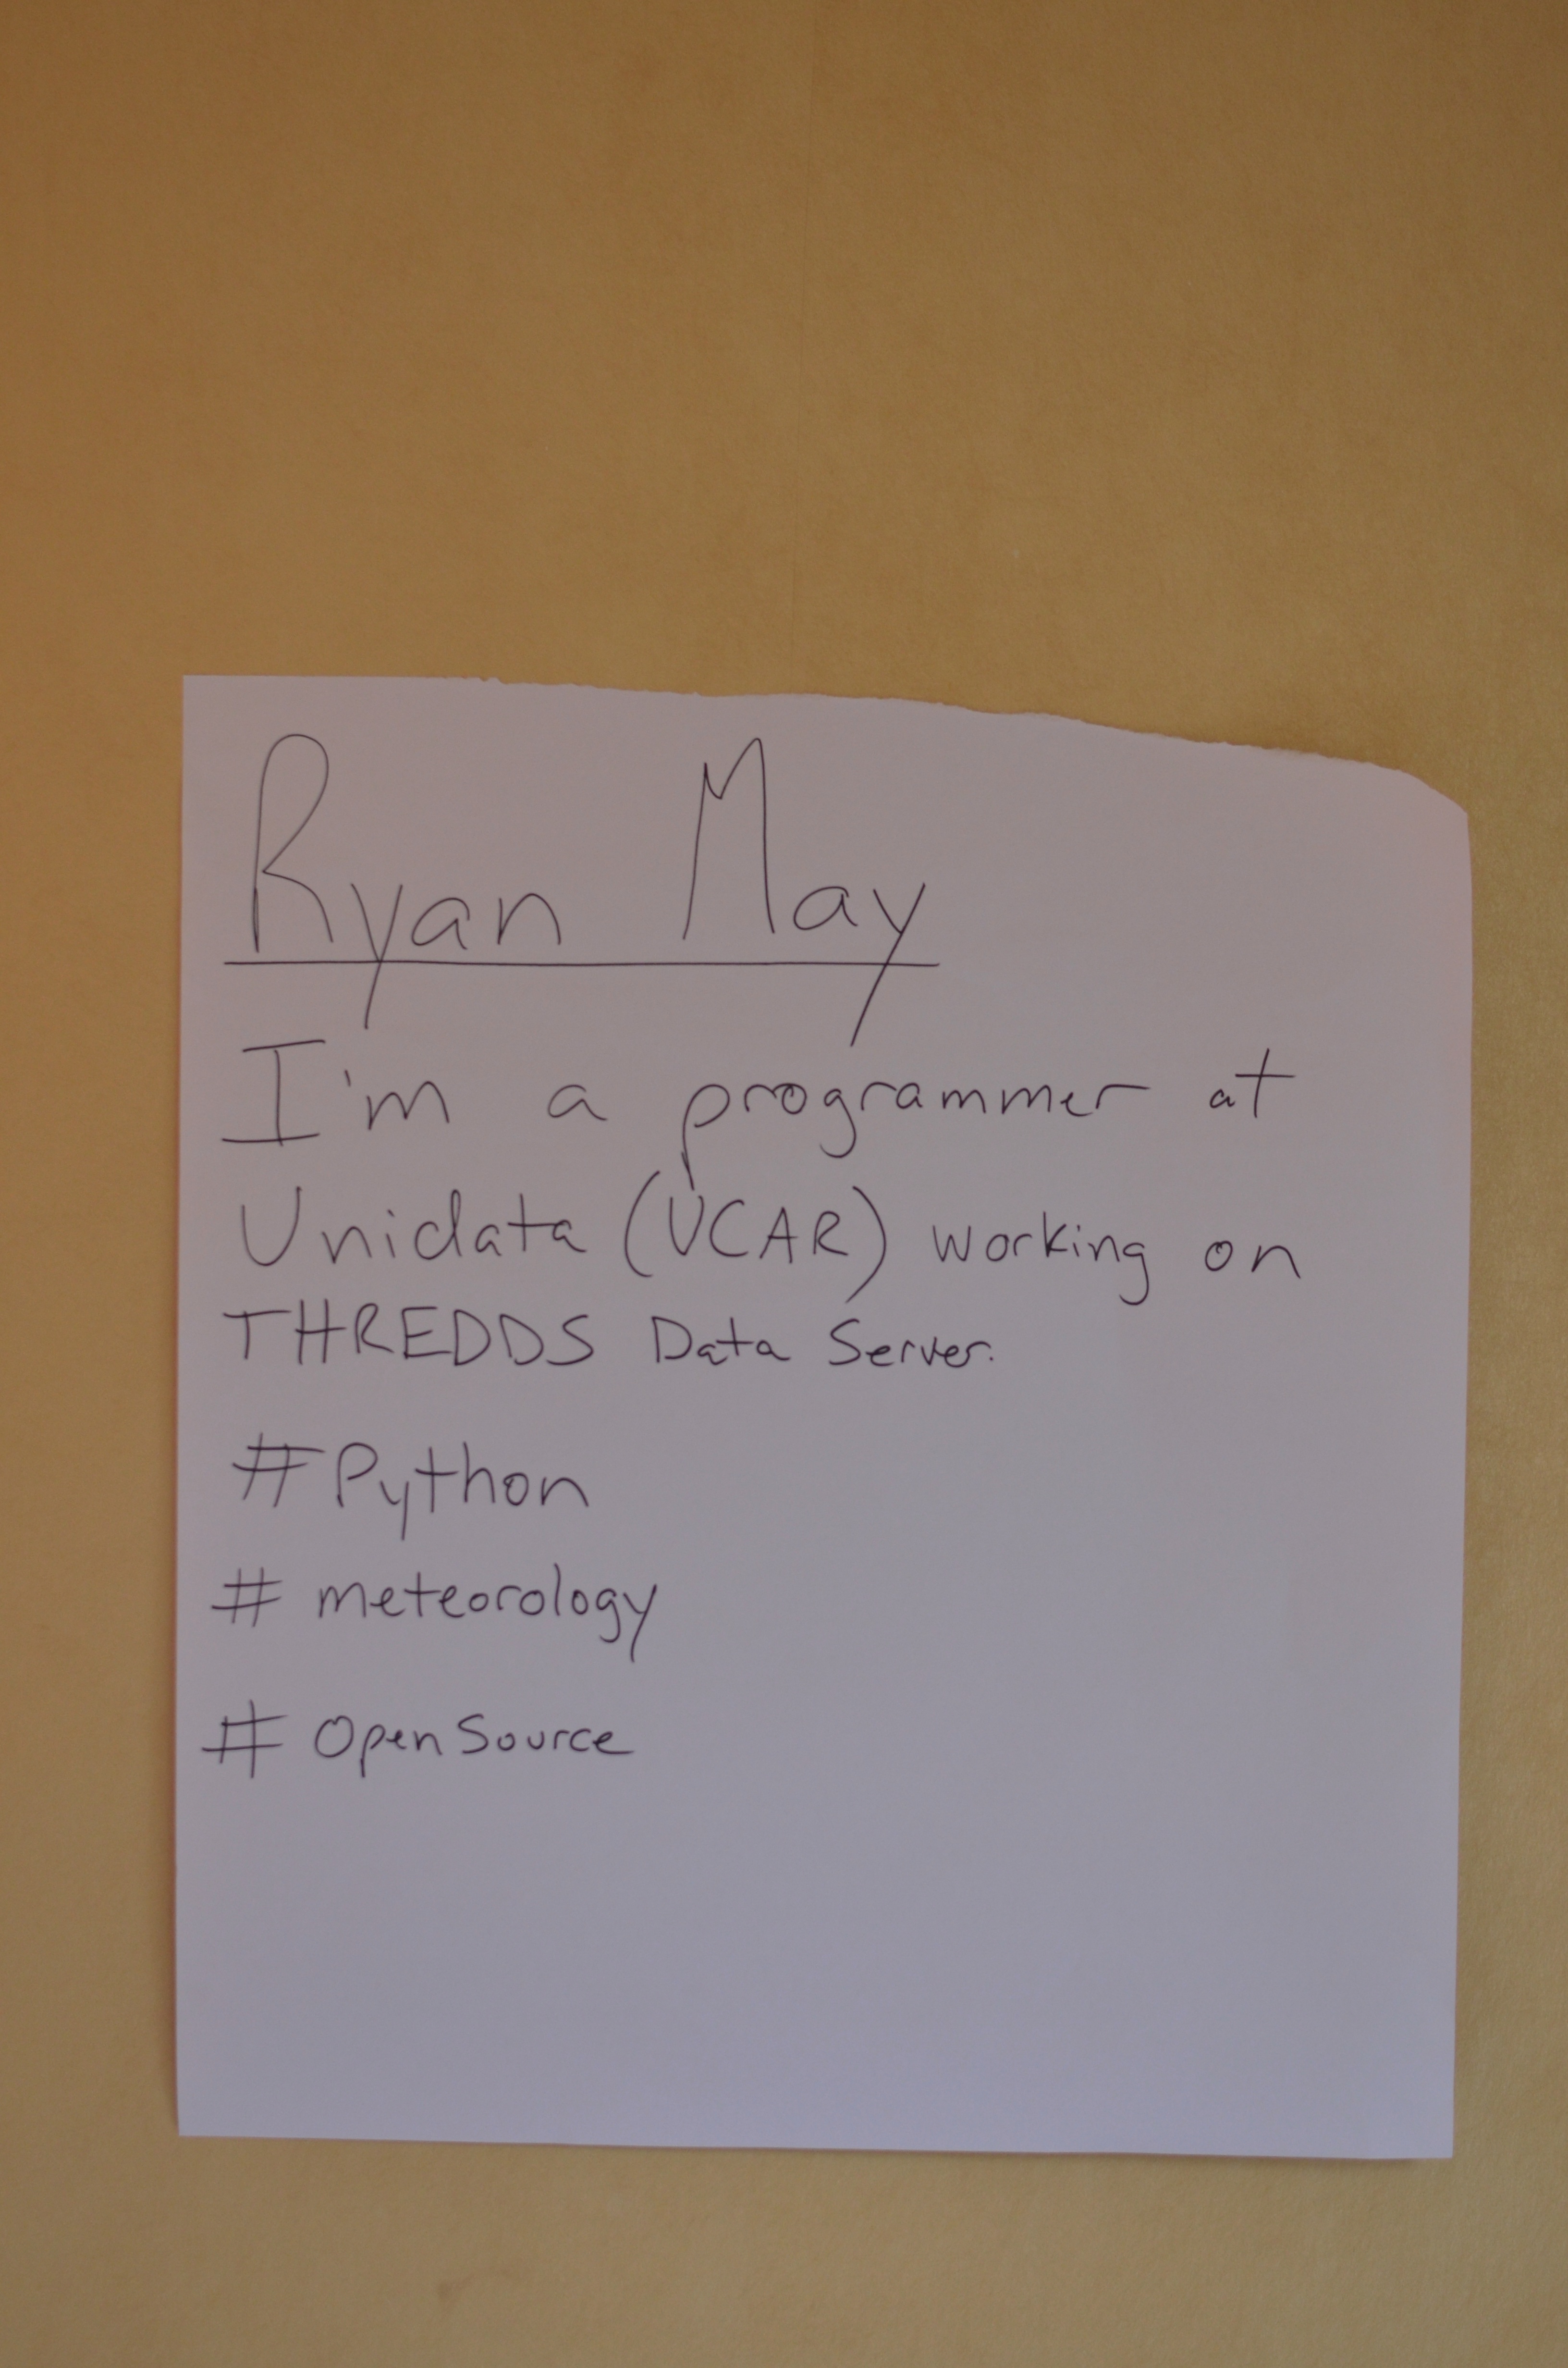 Ryan May
I'm a programmer at
Unidata (UCAR) working on
THREDDS Data Server.
#Python
# meteorology
# OpenSource